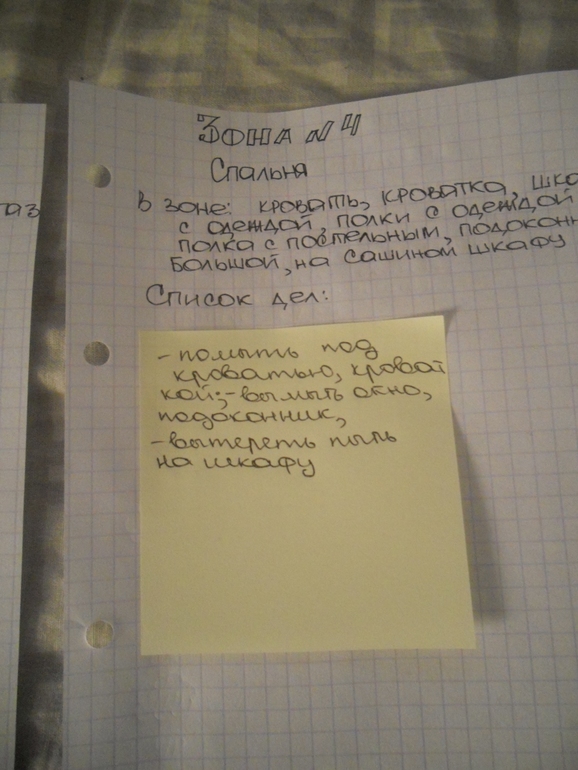 ЗОНА №4
Спальня
В зоне: кровать, кроватка, шка
с одеждой, полки с одеждой
полка с постельным, подоконн
большой, на сашином шкафу
Список дел:
- помыть под
кроватью, кроват
кой; - вымыть окно,
подоконник,
- вытереть пыль
на шкафу
таз